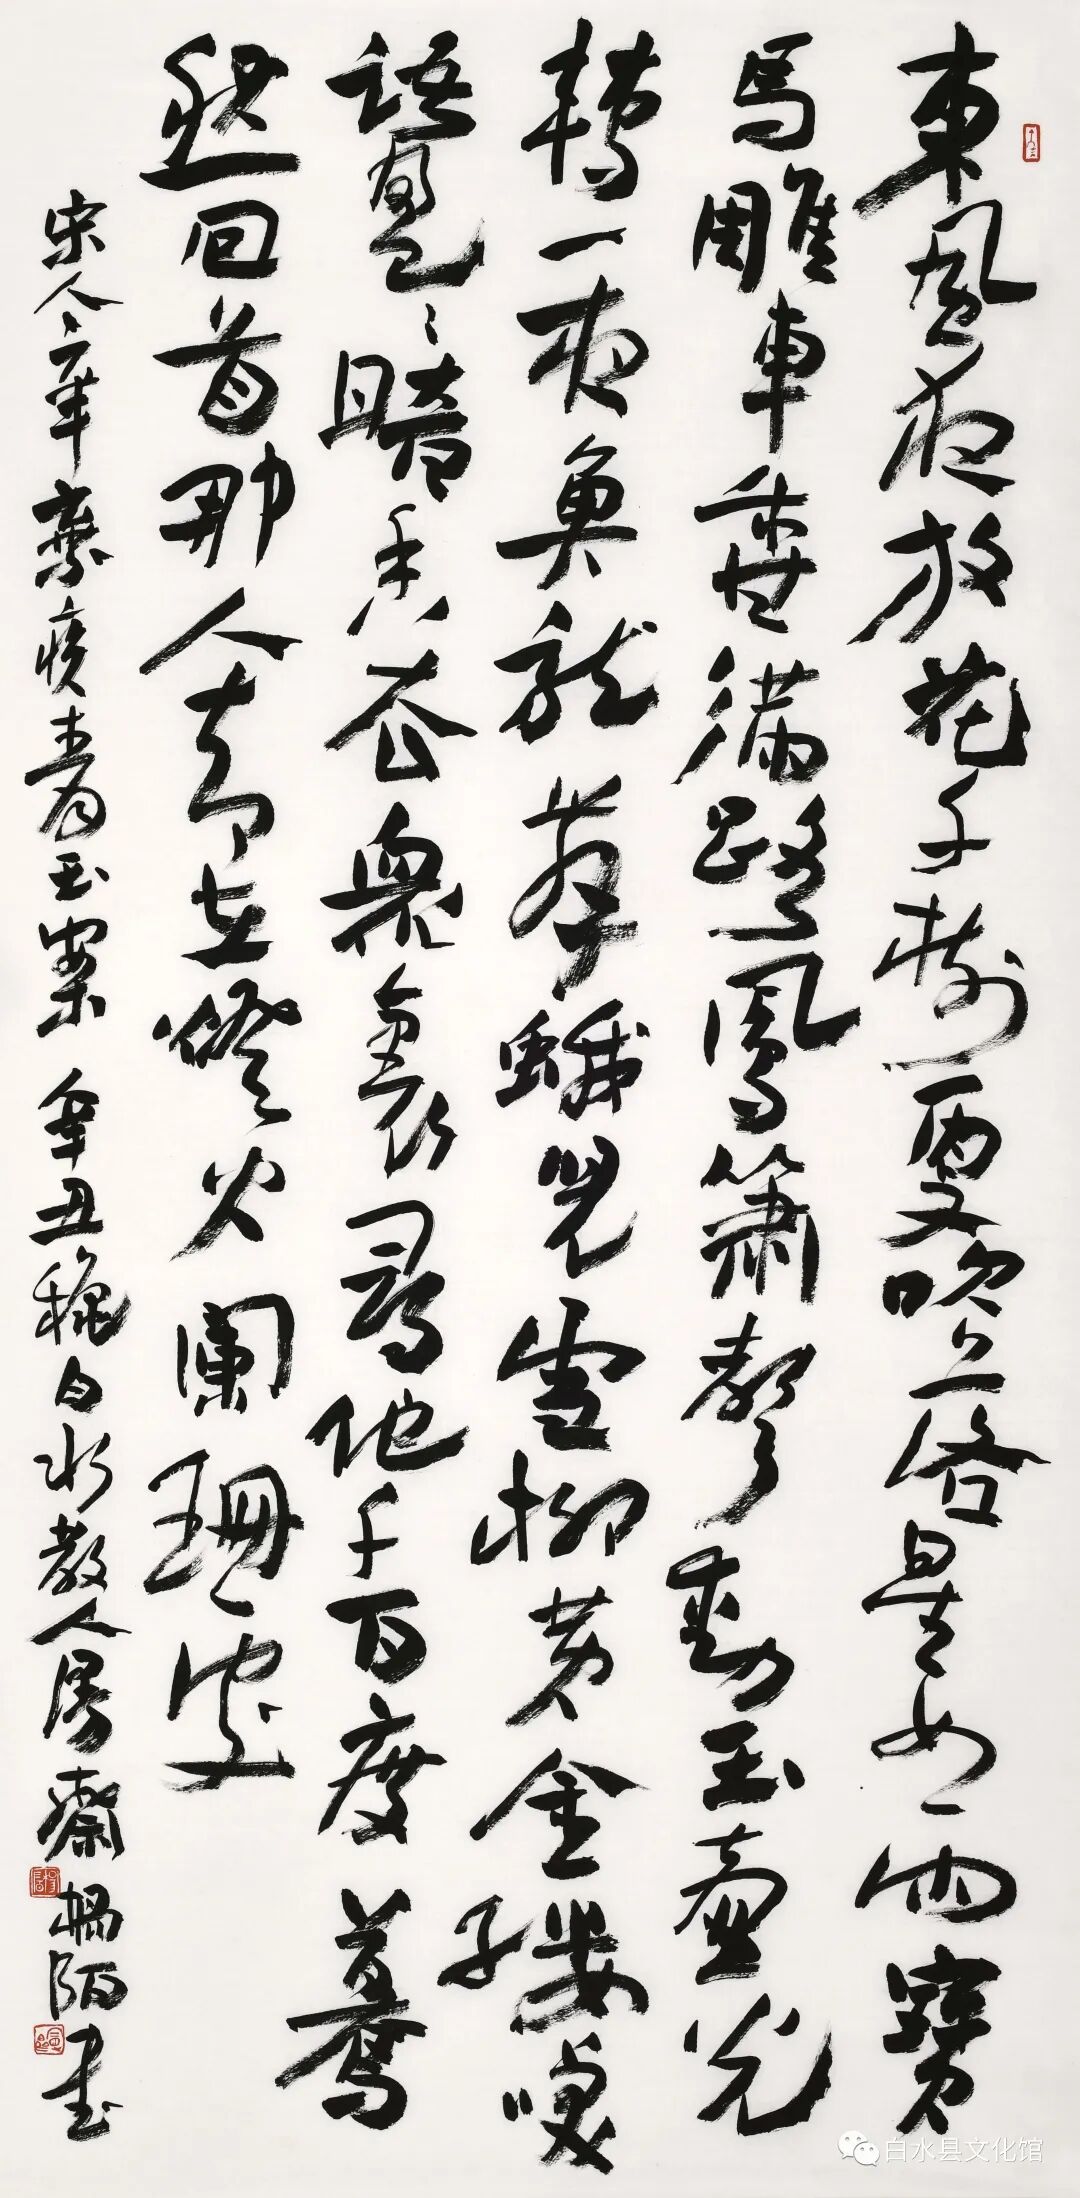 東風夜放花千樹更吹落星如雨寶
馬雕車香滿路鳳簫聲動玉壺光
轉一夜魚龍舞蛾兒雪柳黃金縷咲
語盈〻暗香去衆裏尋他千百度驀
然回首那人却在燈火闌珊處
宋人辛棄疾青玉案 辛丑穐白水散人齋陌書
白水县文化馆